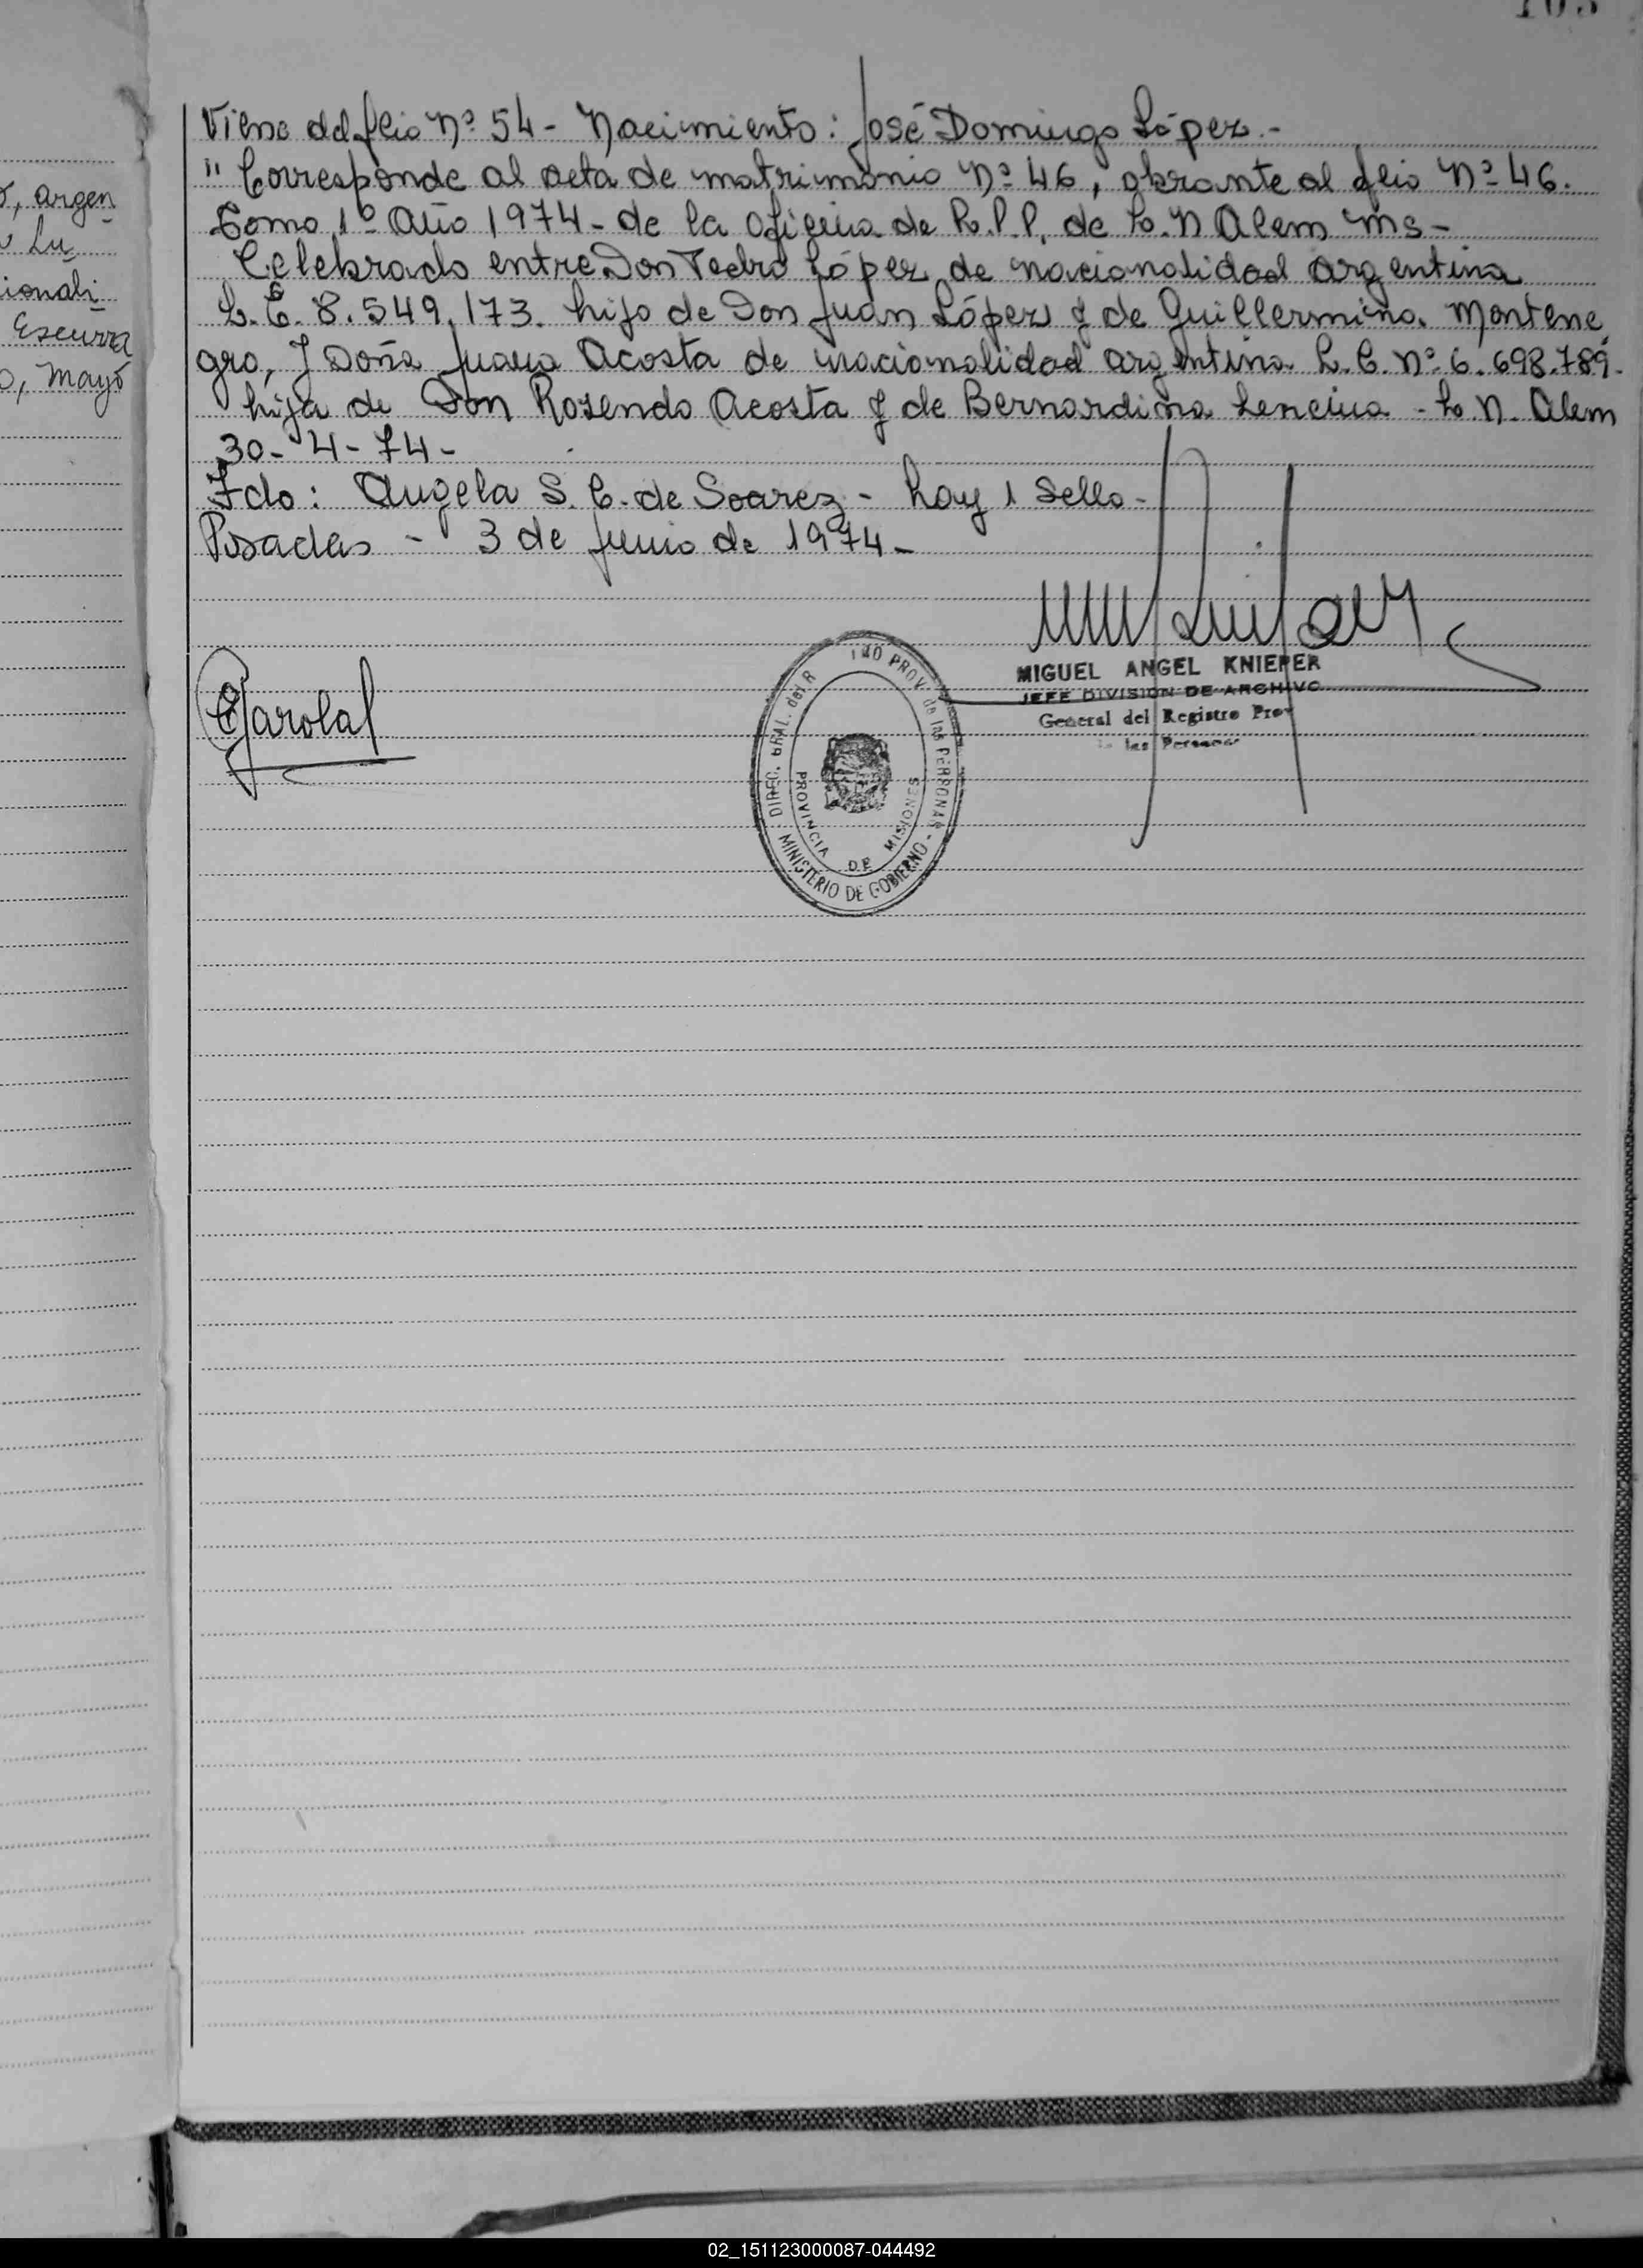 Viene del folio nº 54 - Nacimiento: José Domingo López.-
" Corresponde al acta de matrimonio Nº 46, obrante al folio Nº 46.
Tomo 1º Año 1974 - de la oficina de R.P.P. de L. N Alem Ms -
Celebrado entre Don Pedro López de nacionalidad argentina
L.E. 8.549.173. hijo de Don Juan López y de Guillermina Montene
gro, y Doña Juana Acosta de nacionalidad argentina L.C. Nº 6.698.789.
hija de Don Rosendo Acosta y de Bernardina Lencina - L. N. Alem
30- 4- 74-
Fdo: Angela S. C. de Soarez - hay 1 Sello -
Posadas - 3 de junio de 1974 -
MIGUEL ANGEL KNIEPER
JEFE DIVISION DE ARCHIVO
General del Registro Prov
las Personas
DIREC. GRAL. del R PROV. de las PERSONAS - MINISTERIO DE GOBIERNO -
PROVINCIA DE MISIONES
, argen
Lu
ionali
Escurra
o, mayo
02_151123000087-044492